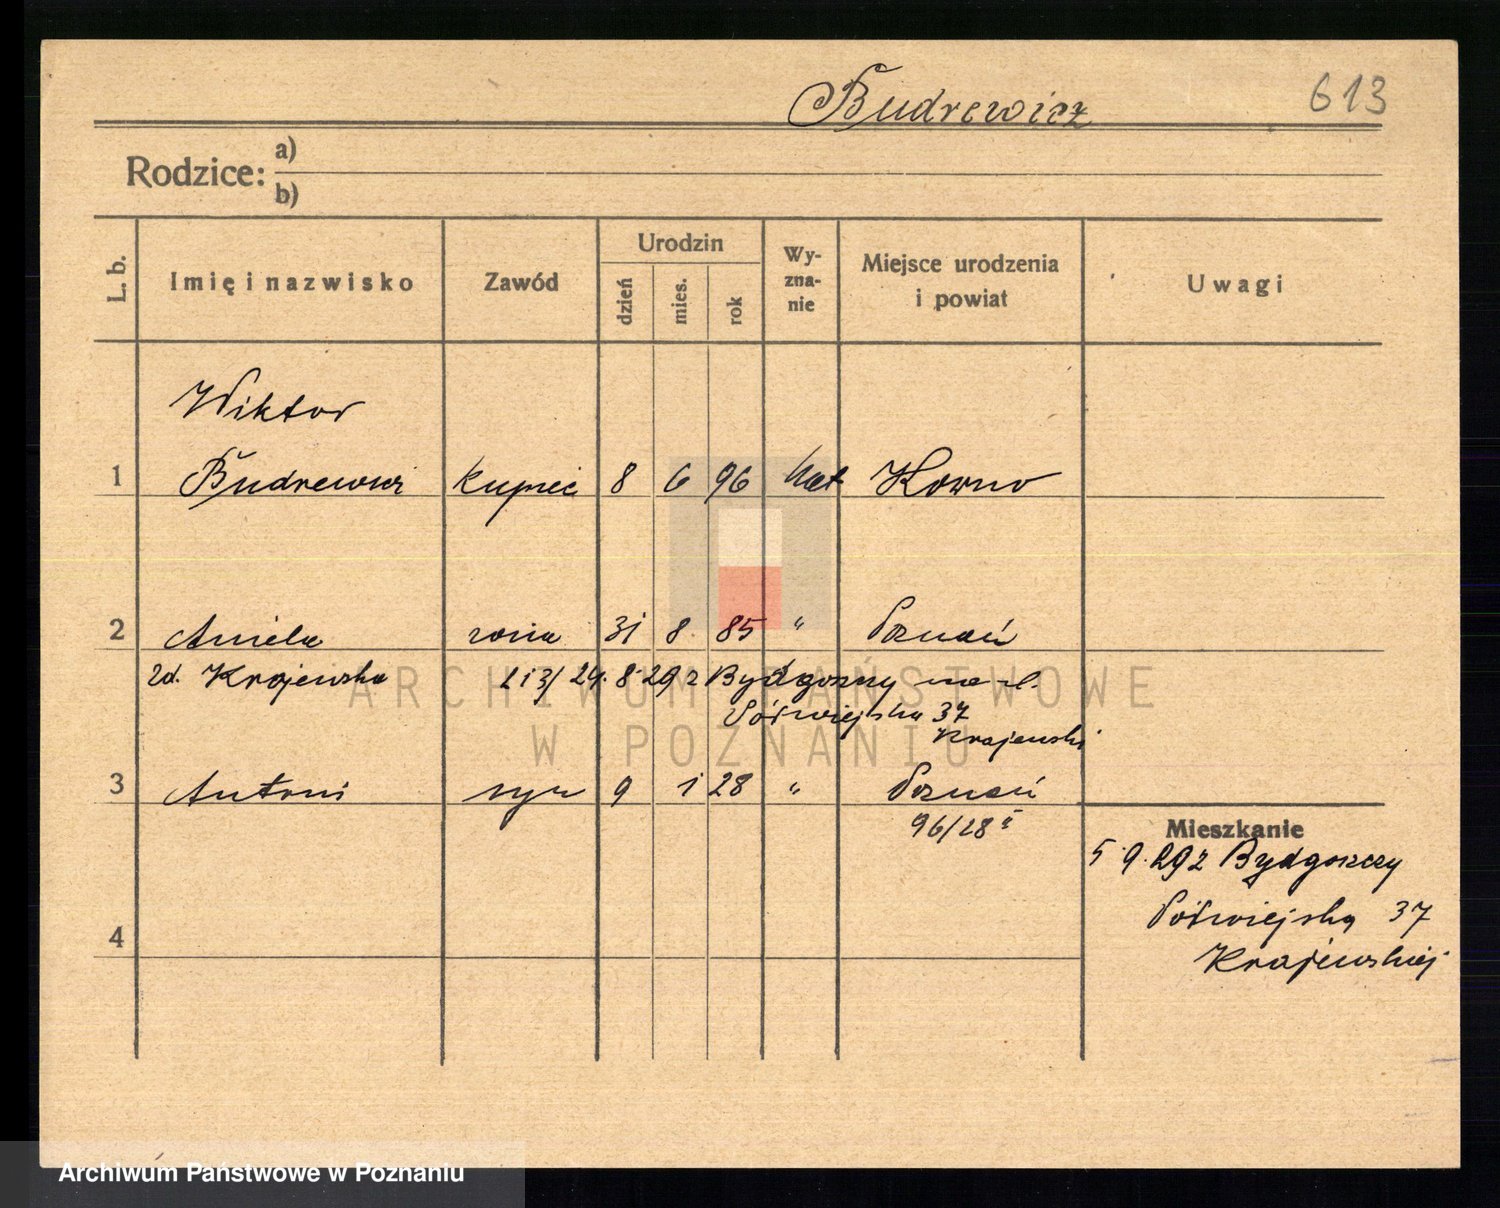 Budrewicz 613
Rodzice: a)
b)
L. b. Imię i nazwisko Zawód Urodzin dzień mies. rok Wy-zna-nie Miejsce urodzenia i powiat Uwagi
Wiktor
1 Budrewicz kupiec 8 6 96 kat Kowno
2 Aniela żona 31 8 85 " Poznań
zd. Krajewska 24. 8 29 z Bydgoszczy
Półwiejska 37
Krajewski
3 Antoni syn 9 1 28 " Poznań
96/28
Mieszkanie
5. 9. 29 z Bydgoszczy
Półwiejska 37
Krajewskiej
4
ARCHIWUM PAŃSTWOWE
W POZNANIU
Archiwum Państwowe w Poznaniu